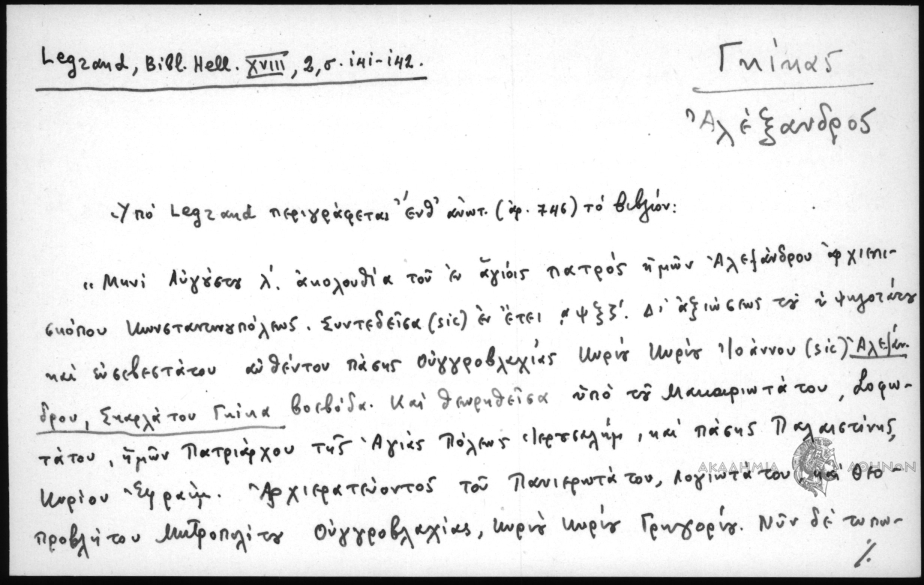 Legrand, Bibl. Hell. XVIII, 2, σ. 141-142.
Γκίκας
Ἀλέξανδρος
Ὑπό Legrand περιγράφεται ἐνθ' ἀνωτ. (ἀρ. 746) τό βιβλίον:
"Μηνί Αὐγούστῳ λ΄. ἀκολουθία τοῦ ἐν ἁγίοις πατρός ἡμῶν Ἀλεξάνδρου ἀρχιεπι-
σκόπου Κωνσταντινουπόλεως. Συντεδεῖσα (sic) ἐν ἔτει ͵αψξζ΄. Δι' ἀξιώσεως τοῦ ὑψηλοτάτου
καί εὐσεβεστάτου αὐθέντου πάσης Οὑγγροβλαχίας Κυρίου Κυρίου Ἰοάννου (sic) Ἀλεξάν-
δρου, Σκαρλάτου Γκίκα βοεβόδα. Καί θεωρηθεῖσα ὑπό τοῦ Μακαριωτάτου, Σοφω-
τάτου, ἡμῶν Πατριάρχου τῆς Ἁγίας Πόλεως Ἱερουσαλήμ, καί πάσης Παλαιστίνης,
Κυρίου Ἐφραίμ. Ἀρχιερατεύοντος τοῦ Πανιερωτάτου, λογιωτάτου, καί Θεο-
προβλήτου Μητροπολίτου Οὑγγροβλαχίας, κυρίου κυρίου Γρηγορίου. Νῦν δέ τυπω-
./.
ΑΚΑΔΗΜΙΑ ΑΘΗΝΩΝ